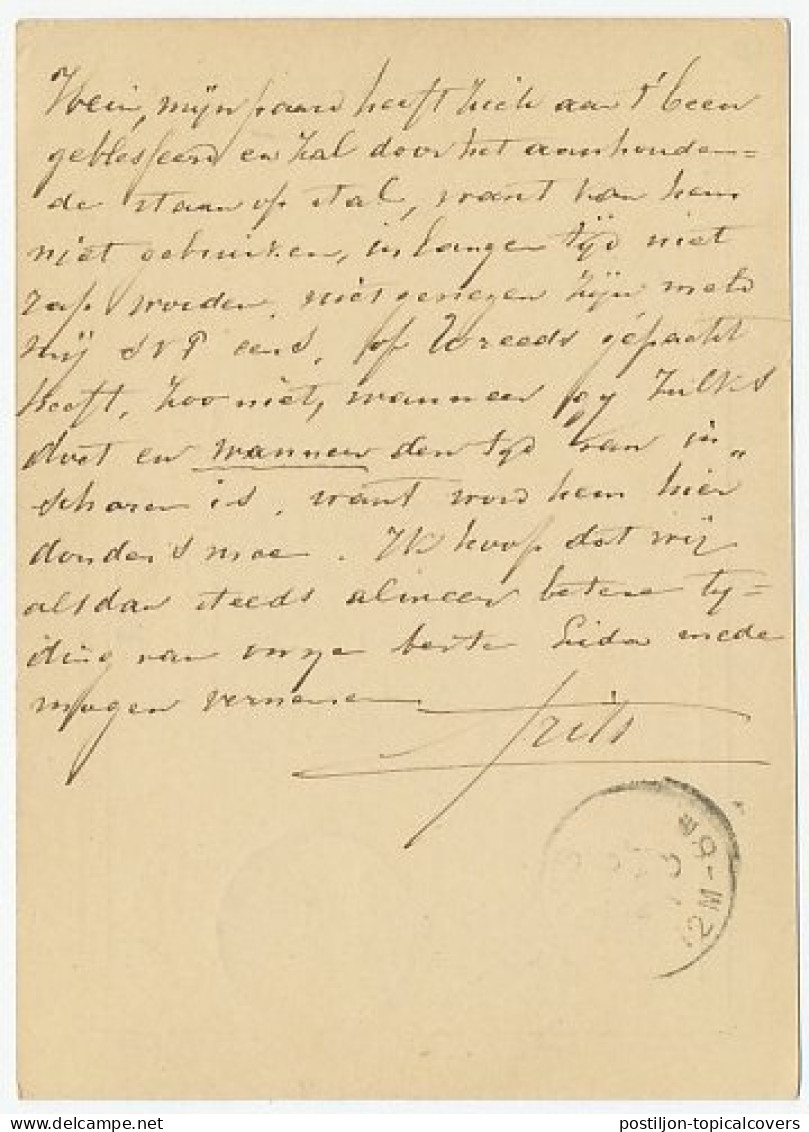 Hein, mijn paard heeft zich aan 't been
geblesseerd en zal door het aanhouden=
de staan op stal, want kan hem
niet gebruiken, in langen tijd niet
rap worden, niet genezen zijn meld
mij SVP eens, of U reeds gepacht
heeft, zoo niet, wanneer gy zulks
doet en wanneer den tyd van in„
scharen is, want word hem hier
donders moe. Ik hoop dat wij
alsdan steeds alineer betere ty=
ding van onze beste Lida mede
mogen vernemen
Frits
2M
postiljon-topicalcovers